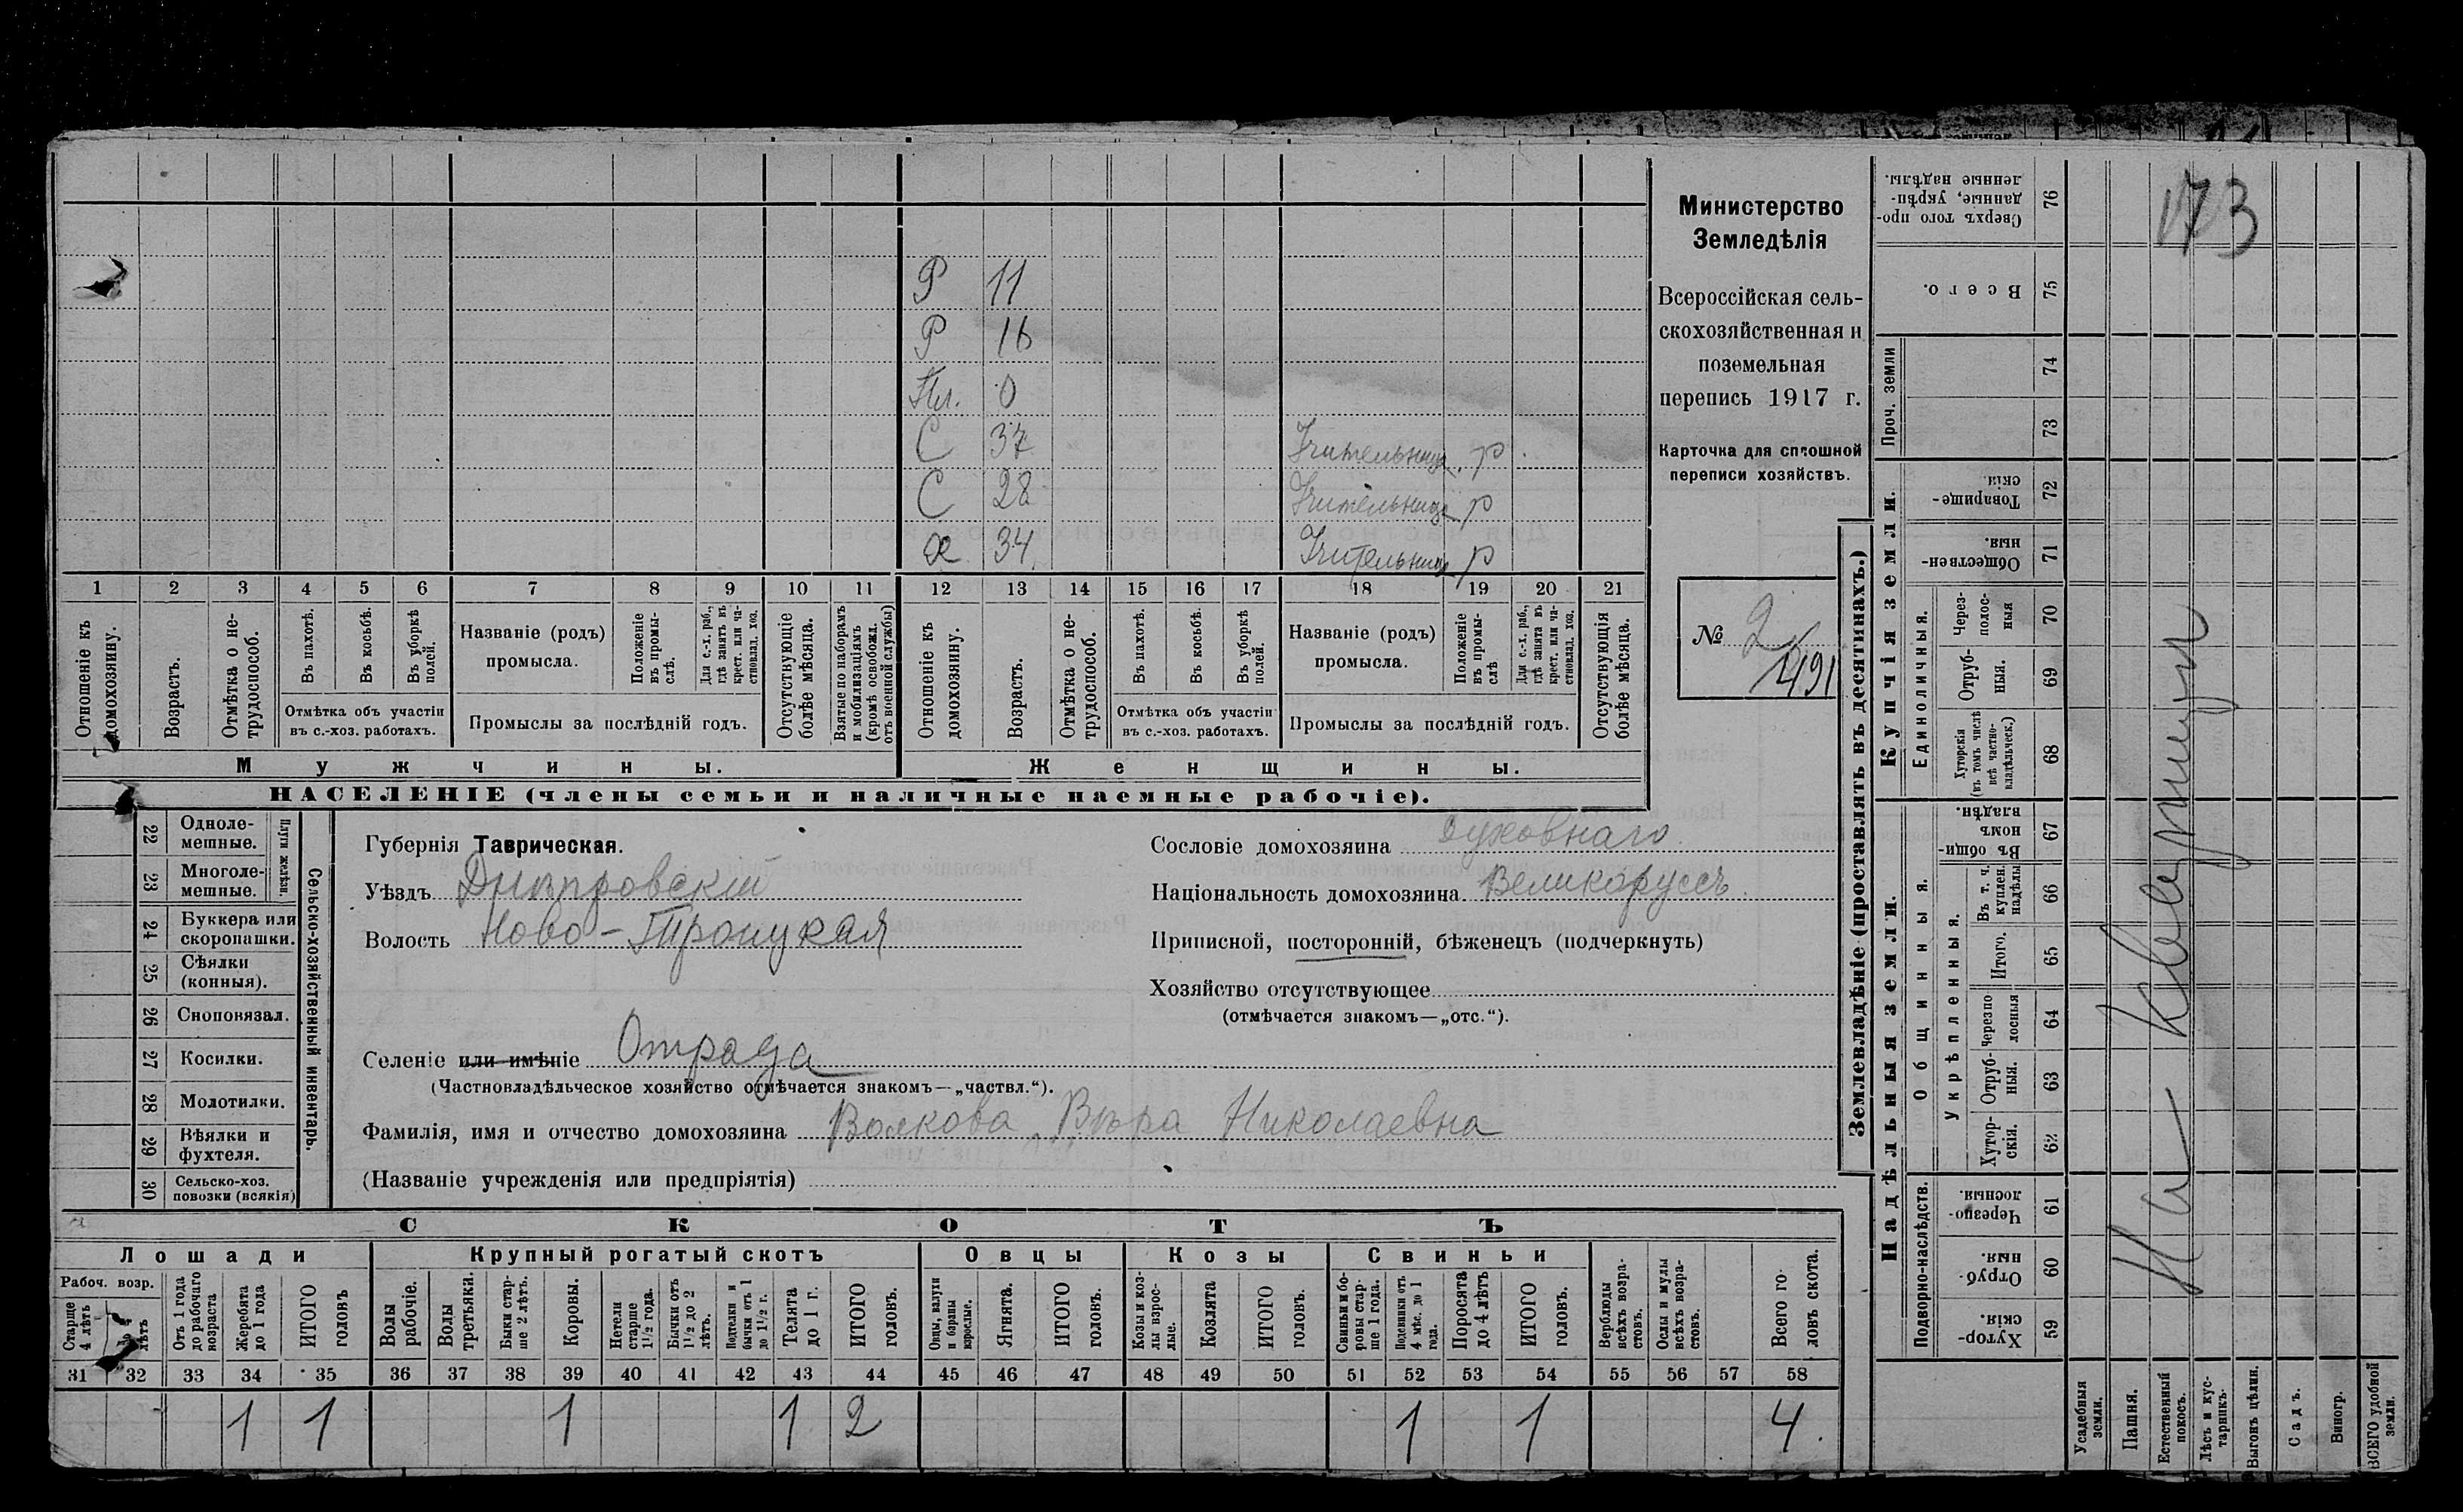 Министерство
Земледѣлія
Всероссійская сель-
скохозяйственная и
поземельная
перепись 1917 г.
Карточка для сплошной
переписи хозяйствъ.
№ 2
1491
173
Р 11
Р 16
Пл. 0
С 37 Учительница р
С 28 Учительница р
Х 34 Учительница р
1 2 3 4 5 6 7 8 9 10 11 12 13 14 15 16 17 18 19 20 21
Отношеніе къ домохозяину.
Возрастъ.
Отмѣтка о не-трудоспособ.
Въ пахотѣ.
Въ косьбѣ.
Въ уборкѣ полей.
Отмѣтка объ участіи въ с.-хоз. работахъ.
Названіе (родъ) промысла.
Положеніе въ промы-слѣ.
Для с.-х. раб., гдѣ занятъ въ крест. или ча-стновлад. хоз.
Промыслы за послѣдній годъ.
Отсутствующіе болѣе мѣсяца.
Взятые по наборамъ и мобилизаціямъ (кромѣ освобожд. отъ военной службы)
Отношеніе къ домохозяину.
Возрастъ.
Отмѣтка о не-трудоспособ.
Въ пахотѣ.
Въ косьбѣ.
Въ уборкѣ полей.
Отмѣтка объ участіи въ с.-хоз. работахъ.
Названіе (родъ) промысла.
Положеніе въ промы-слѣ
Для с.-х. раб., гдѣ занята въ крест. или ча-стновлад. хоз.
Промыслы за послѣдній годъ.
Отсутствующія болѣе мѣсяца.
Мужчины.
Женщины.
НАСЕЛЕНІЕ (члены семьи и наличные наемные рабочіе).
Сельско-хозяйственный инвентарь.
Плуги желѣзн.
22 Одноле-мешные.
23 Многоле-мешные.
24 Буккера или скоропашки.
25 Сѣялки (конныя).
26 Сноповязал.
27 Косилки.
28 Молотилки.
29 Вѣялки и фухтеля.
30 Сельско-хоз. повозки (всякія)
Губернія Таврическая.
Уѣздъ Днѣпровскій
Волость Ново-Троицкая
Селеніе или имѣніе Отрада
(Частновладѣльческое хозяйство отмѣчается знакомъ—„частвл.“).
Фамилія, имя и отчество домохозяина Волкова Вѣра Николаевна
(Названіе учрежденія или предпріятія)
Сословіе домохозяина духовнаго
Національность домохозяина Великоруссъ
Приписной, посторонній, бѣженецъ (подчеркнуть)
Хозяйство отсутствующее
(отмѣчается знакомъ—„отс.“).
СКОТЪ
Лошади
Крупный рогатый скотъ
Овцы
Козы
Свиньи
Рабоч. возр.
Старше 4 лѣтъ
лѣтъ
Отъ 1 года до рабочаго возраста
Жеребята до 1 года
ИТОГО головъ
Волы рабочіе.
Волы третьяки.
Быки стар-ше 2 лѣтъ.
Коровы.
Нетели старше 1½ года.
Бычки отъ 1½ до 2 лѣтъ.
Подтелки и бычки отъ 1 до 1½ г.
Телята до 1 г.
ИТОГО головъ.
Овцы, валухи и бараны взрослые.
Ягнята.
ИТОГО головъ.
Козы и коз-лы взрос-лые.
Козлята
ИТОГО головъ.
Свиньи и бо-ровы стар-ше 1 года.
Подсвинки отъ 4 мѣс. до 1 года.
Поросята до 4 лѣтъ
ИТОГО головъ.
Верблюды всѣхъ возра-стовъ.
Ослы и мулы всѣхъ возра-стовъ.
Всего го-ловъ скота.
31 32 33 34 35 36 37 38 39 40 41 42 43 44 45 46 47 48 49 50 51 52 53 54 55 56 57 58
1 1 1 1 2 1 1 4.
Землевладѣніе (проставлять въ десятинахъ.)
Надѣльныя земли.
Купчія земли.
Проч. земли
Подворно-наслѣдств.
Общинныя.
Укрѣпленныя.
Единоличныя.
Хутор-скія. 59
Отруб-ныя 60
Черезпо-лосныя. 61
Хутор-скія. 62
Отруб-ныя. 63
Черезпо лосныя 64
Итого. 65
Въ т. ч. куплен. надѣлы 66
Въ общи-номъ владѣн. 67
Хуторскія (въ томъ числѣ всѣ частно-владѣльческ.) 68
Отруб-ныя. 69
Через-полос-ныя 70
Обществен-ныя. 71
Товарище-скія 72
73
74
Всего. 75
Сверхъ того про-данные, укрѣп-ленные надѣлы. 76
Усадебныя земли.
Пашня.
Естественный покосъ.
Лѣсъ и кус-тарникъ.
Выгонъ цѣлин.
Садъ.
Виногр.
ВСЕГО удобной земли.
На квартирѣ